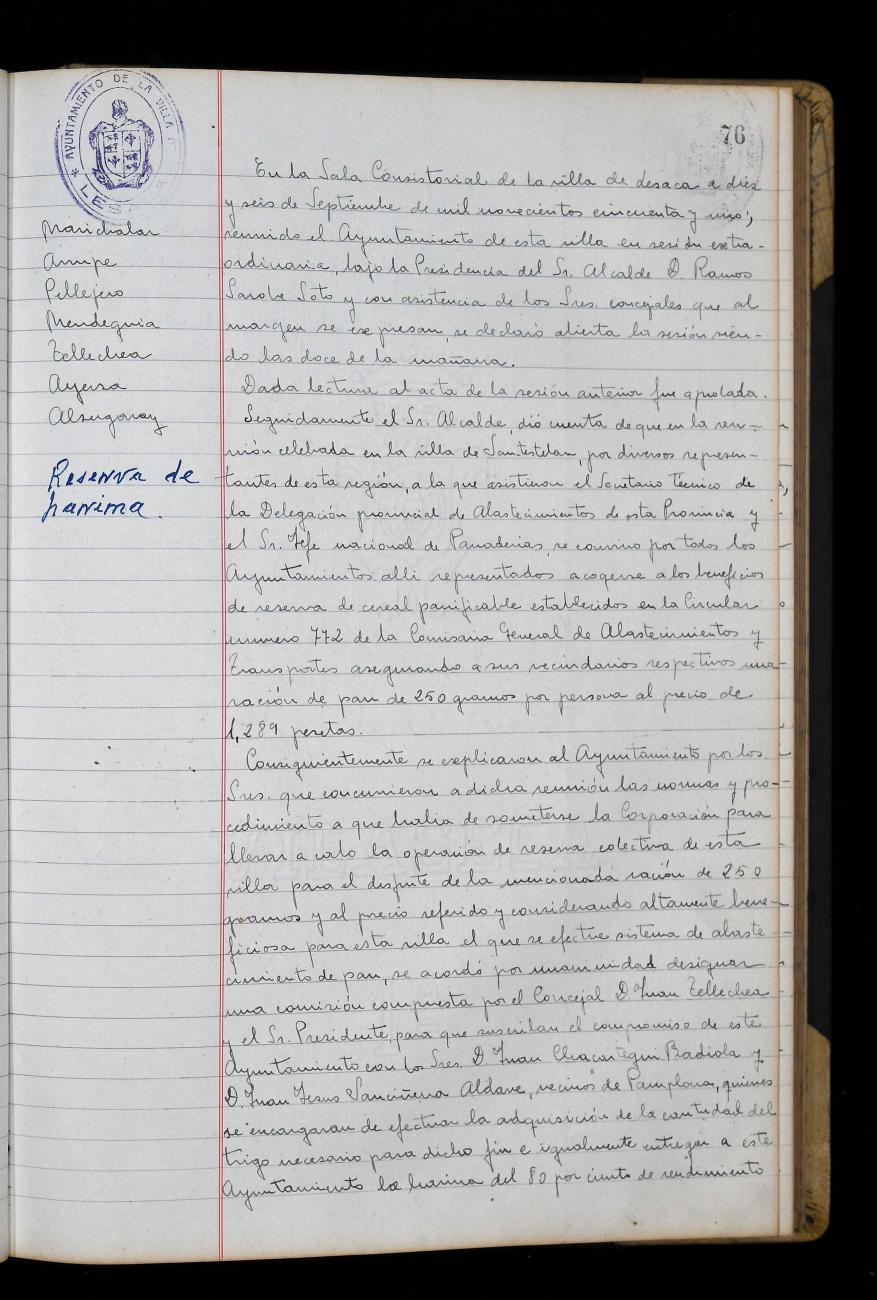 AYUNTAMIENTO DE LA VILLA
LES
76
Marichalar
Arrupe
Pellejero
Mendeguia
Tellechea
Ayerra
Alzugaray
Reserva de
harina.
En la Sala Consistorial de la villa de Lesaca a diez
y seis de Septiembre de mil novecientos cincuenta y uno;
reunido el Ayuntamiento de esta villa en sesión extra-
ordinaria, bajo la Presidencia del Sr. Alcalde D. Ramos
Sarobe Soto y con asistencia de los Sres. concejales que al
margen se expresan, se declaró abierta la sesión sien-
do las doce de la mañana.
Dada lectura al acta de la sesión anterior fue aprobada.
Seguidamente el Sr. Alcalde, dió cuenta de que en la reu-
nión celebrada en la villa de Santesteban, por diversos represen-
tantes de esta región, a la que asistieron el Secretario Tecnico de
la Delegación provincial de Abastecimientos de esta Provincia y
el Sr. Jefe nacional de Panaderias, se convino por todos los
Ayuntamientos alli representados acogerse a los beneficios
de reserva de cereal panificable establecidos en la Circular
numero 772 de la Comisaria General de Abastecimientos y
Transportes asegurando a sus vecindarios respectivos una
ración de pan de 250 gramos por persona al precio de
1,289 pesetas.
Consiguientemente se explicaron al Ayuntamiento por los
Sres. que concurrieron a dicha reunión las normas y pro-
cedimiento a que habia de someterse la Corporación para
llevar a cabo la operación de reserva colectiva de esta
villa para el disfrute de la mencionada ración de 250
gramos y al precio referido y considerando altamente bene-
ficiosa para esta villa el que se efectue sistema de abaste
cimiento de pan, se acordó por unanimidad designar
una comisión compuesta por el Concejal D. Juan Tellechea
y el Sr. Presidente, para que suscriban el compromiso de este
Ayuntamiento con los Sres. D. Juan Badiola y
D. Juan Jesus Sanciñena Aldave, vecinos de Pamplona, quienes
se encargaran de efectuar la adquisición de la cantidad del
trigo necesario para dicho fin e igualmente entregar a este
Ayuntamiento la harina del 80 por ciento de rendimiento